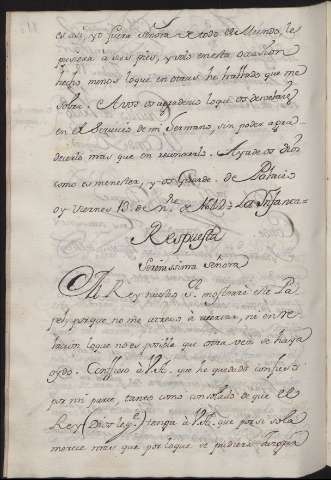 es asi, y si fuera señora de todo el Mundo, le
pusiera a sus pies, y solo en esta occasion
hecho menos lo que en otras he hallado que me
sobra. A vos os agradezco lo que os desvelais
en el Servicio de mi Hermano, sin poder agra-
decerlo mas que en reconocerlo. Ayude os Dios
como es menester, y os Guarde. de Palacio
oy Viernes 13. de de 1642: La Infanta =
Respuesta
Serenissima Señora
Al Rey nuestro S.r mostraré este Pa-
pel, porque no me atrevo a referir, ni en re-
lacion lo que no es posible que otra vez se haya
oydo. Confieso à V.A. que he quedado confuso
por mi parte, tanto como consolado de que el
Rey (Dios le g.e) tenga à V.A. que por si sola
merece mas que por lo que se pudiera